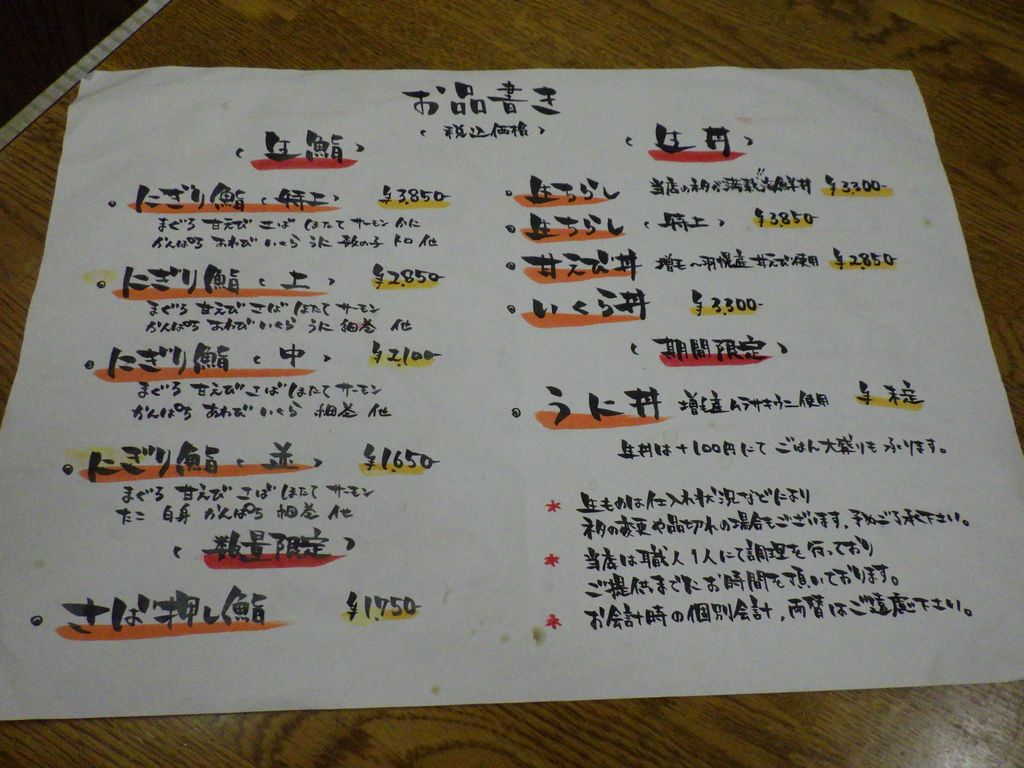 お品書き
(税込価格)
(生鮨)
・にぎり鮨(特上) ¥3,850-
まぐろ 甘えび さば ほたて サーモン かに
かんぱち あわび いくら うに 数の子 トロ 他
・にぎり鮨(上) ¥2,850-
まぐろ 甘えび さば ほたて サーモン
かんぱち あわび いくら うに 細巻 他
・にぎり鮨(中) ¥2,100-
まぐろ 甘えび さば ほたて サーモン
かんぱち あわび いくら 細巻 他
・にぎり鮨(並) ¥1,650-
まぐろ 甘えび さば ほたて サーモン
たこ 白身 かんぱち 細巻 他
(数量限定)
・さば押し鮨 ¥1,750-
(生丼)
・生ちらし 当店のネタが満載!!海鮮丼 ¥3,300-
・生ちらし(特上) ¥3,850-
・甘えび丼 増毛〜羽幌産甘えび使用 ¥2,850-
・いくら丼 ¥3,300-
(期間限定)
・うに丼 増毛産ムラサキウニ使用 ¥未定
生丼は+100円にてごはん大盛りも承ります。
* 生ものは仕入れ状況などにより
ネタの変更や品切れの場合もございます。予めご了承下さい。
* 当店は職人1人にて調理を行っており
ご提供までにお時間を頂いております。
* お会計時の個別会計,両替はご遠慮下さい。